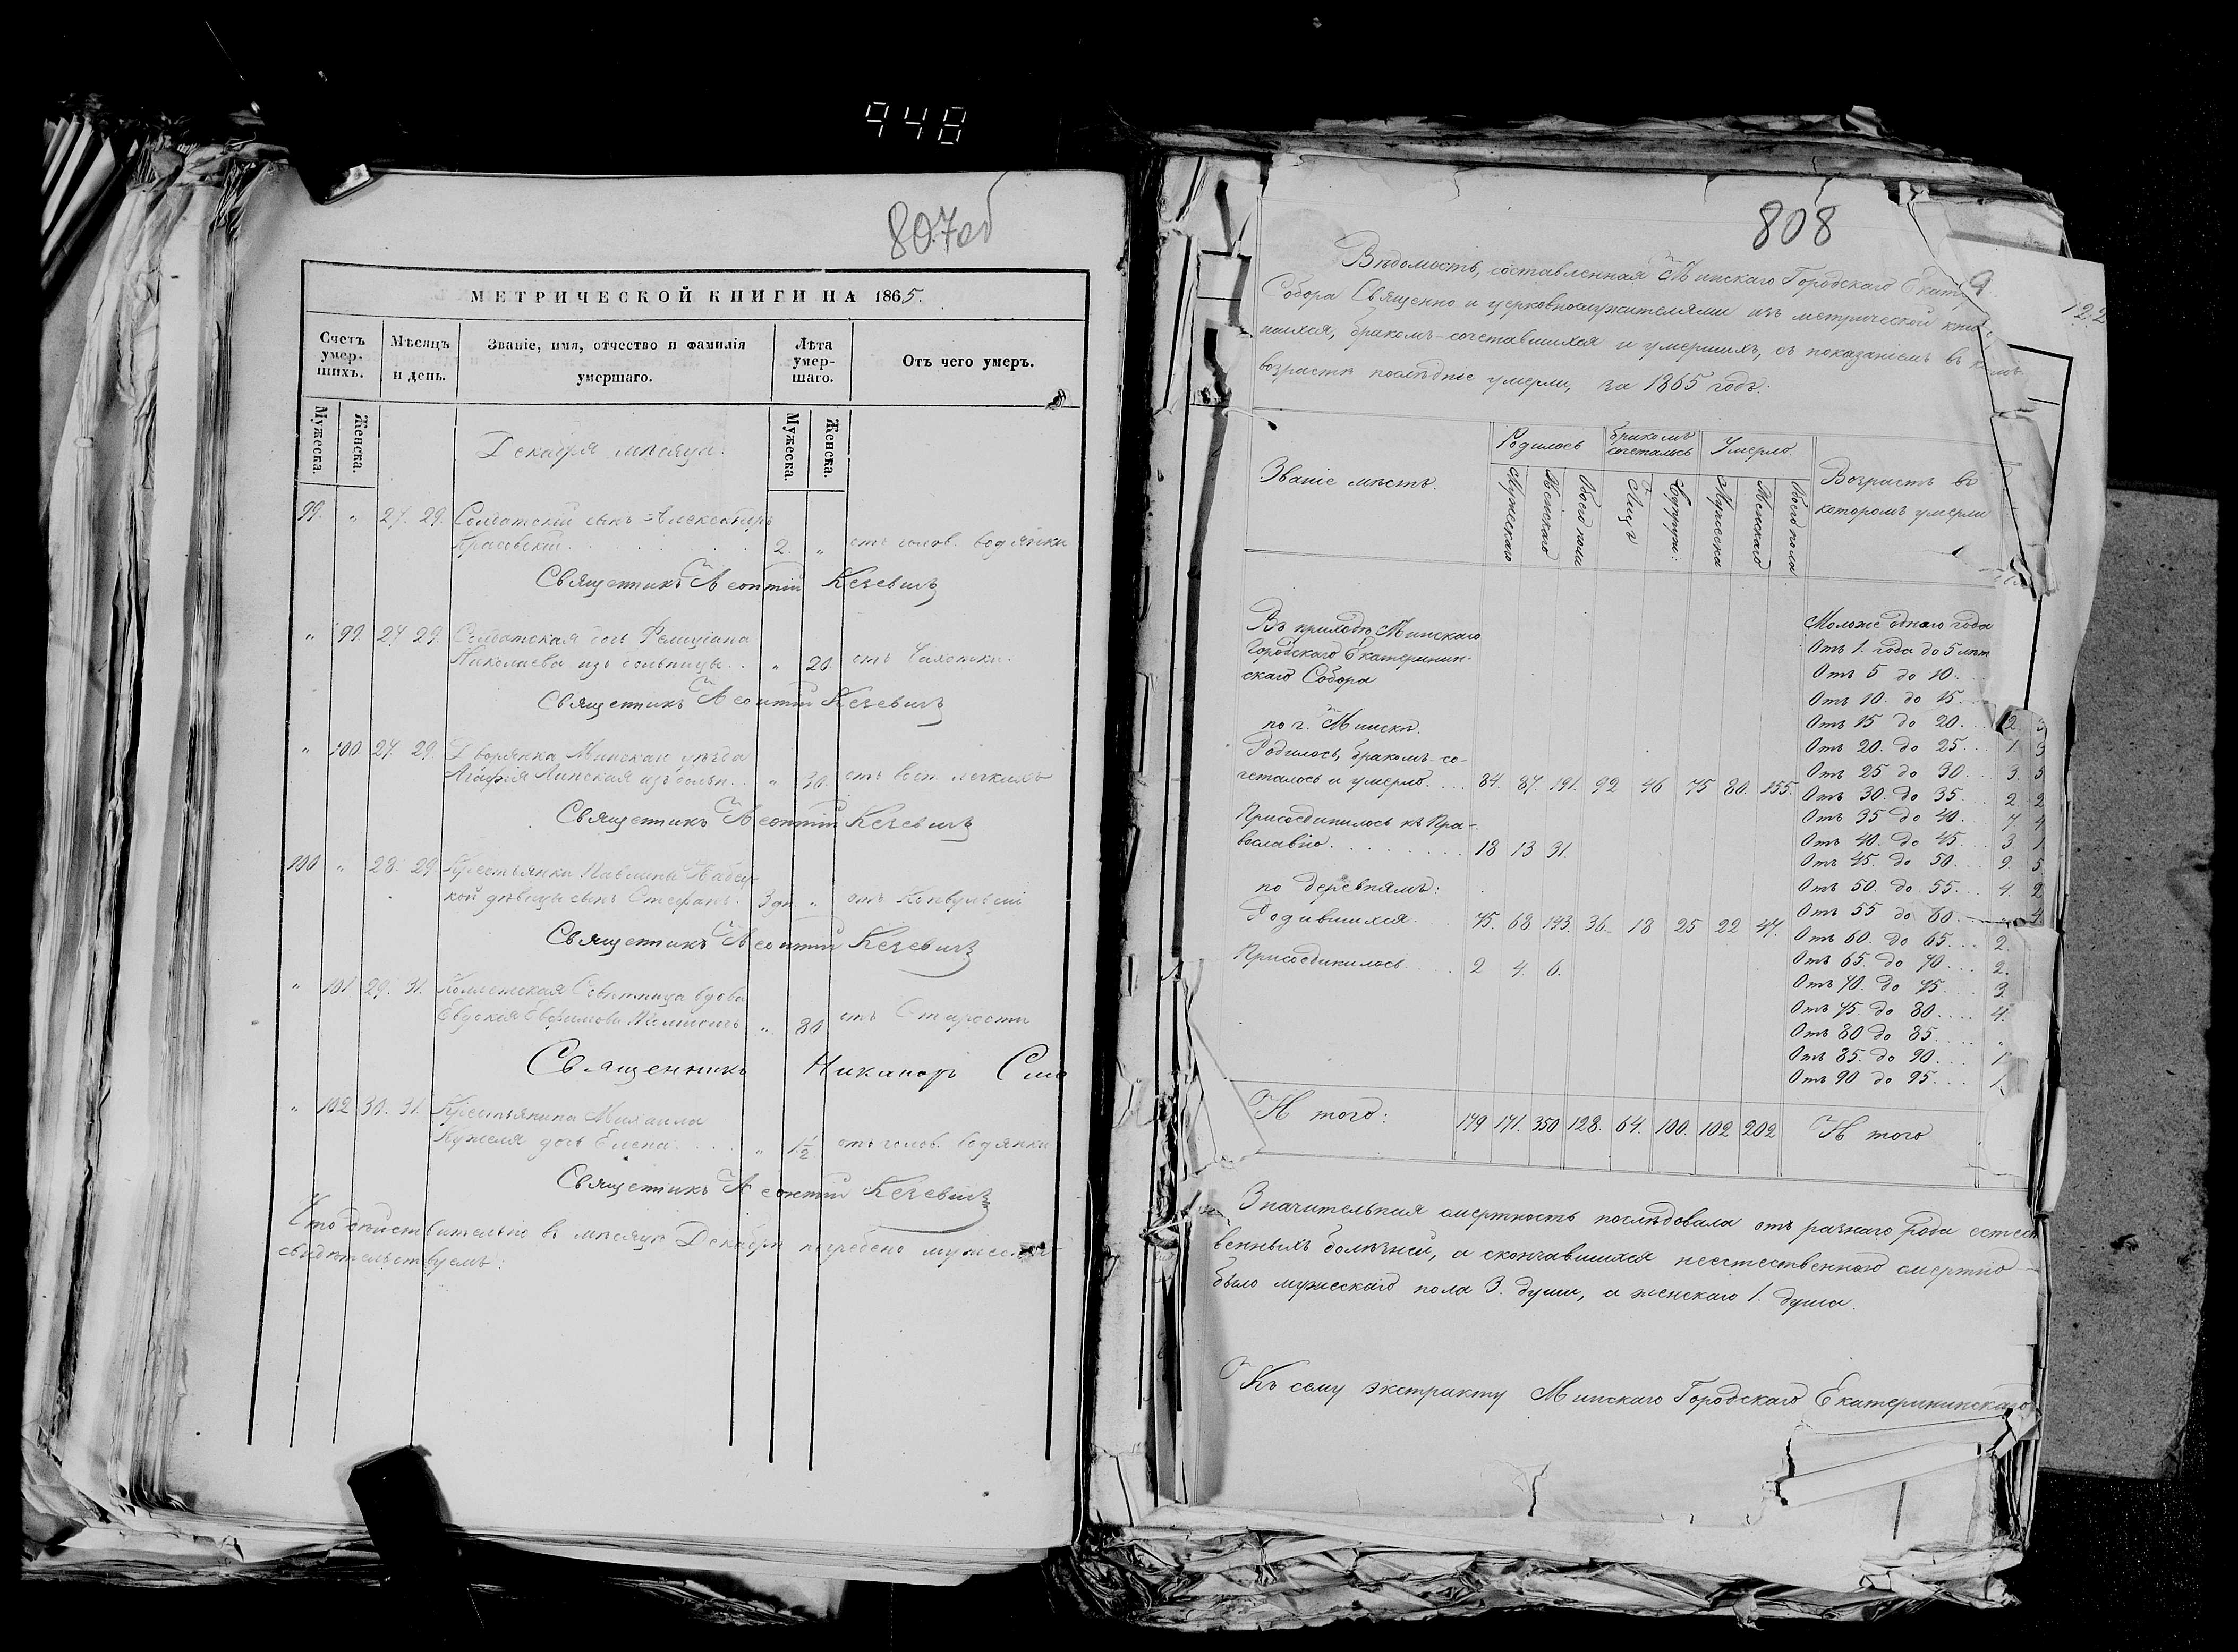 948
807об
МЕТРИЧЕСКОЙ КНИГИ НА 1865.
Счетъ умер-шихъ.
Мѣсяцъ и день.
Званіе, имя, отчество и фамилія умершаго.
Лѣта умер-шаго.
Отъ чего умеръ.
Мужеска.
Женска.
Мужеска.
Женска.
Декабря мѣсяца.
99. " 27. 29. Солдатскій сынъ Александръ
Красовскій 2. " отъ голов. водянки
Священникъ Леонтій
" 99. 27 29. Солдатская дочь Фелиціана
Николаева изъ больницы. " 20. отъ Чахотки.
Священникъ Леонтій
" 100. 27 29. Дворянка Минскаго уѣзда
Агафія Линская изъ больн. " 30. отъ восп. легкихъ
Священникъ Леонтій
100 " 28. 29 Крестьянки Павлины
кой дѣвицы сынъ Стефанъ. 3 дн. " отъ Конвульсій
Священникъ Леонтій
" 101. 29. 31. Совѣтница вдова
Евдокія Евфимова " 80 отъ Старости
Священникъ Никаноръ
" 102 30. 31. Крестьянина Михаила
Кужеля дочь Елена " 1½ отъ голов. водянки
Священникъ Леонтій
Что дѣйствительно въ мѣсяцѣ Декабрѣ погребено
свидѣтельствуемъ:
808
122
Вѣдомость, составленная Минскаго Городскаго
Собора Священно и церковнослужителями изъ метрической
браком-сочетавшихся и умершихъ, съ показаніемъ въ
возрастѣ послѣдніе умерли, за 1865 годъ.
Званіе мѣстъ.
Родилось
Бракомъ сочеталось
Умерло
Возрастъ въ
которомъ умерли
Мужескаго
Женскаго
Обоего пола
Лицъ
Супруж:
Мужеска
Женскаго
Обоего пола
Въ приходѣ Минскаго
Городскаго Екатеринин-
скаго Собора
по г. Минску.
Родилось, бракомъ со-
четалось и умерло. 84. 87. 191. 92 46 75 80. 155.
Присоединилось къ Пра-
вославію 18 13 31.
по деревнямъ:
Родившихся 75. 68. 143. 36. 18 25 22 47.
Присоединилось 2 4. 6.
Моложе однаго года
Отъ 1. года до 5 лѣт
Отъ 5 до 10.
Отъ 10 до 15
Отъ 15 до 20. 2 3
Отъ 20. до 25. 1. 3
Отъ 25 до 30. 3. 5
Отъ 30. до 35. 2 2
Отъ 35 до 40. 7 4
Отъ 40. до 45. 3 1
Отъ 45. до 50. 9. 5
Отъ 50. до 55. 4. 2
Отъ 55 до 60. 4.
Отъ 60. до 65. 2.
Отъ 65. до 70. 2.
Отъ 70. до 75. 3.
Отъ 75. до 80. 4.
Отъ 80 до 85. "
Отъ 85. до 90. 1
Отъ 90 до 95. 1.
И того: 179 171. 350 128. 64. 100. 102 202 И того
Значительная смертность послѣдовала отъ разнаго рода естест
венныхъ болѣзней, а скончавшихся неестественною смертію
было мужескаго пола 3. души, а женскаго 1. душа.
Къ сему экстракту Минскаго Городскаго Екатерининскаго